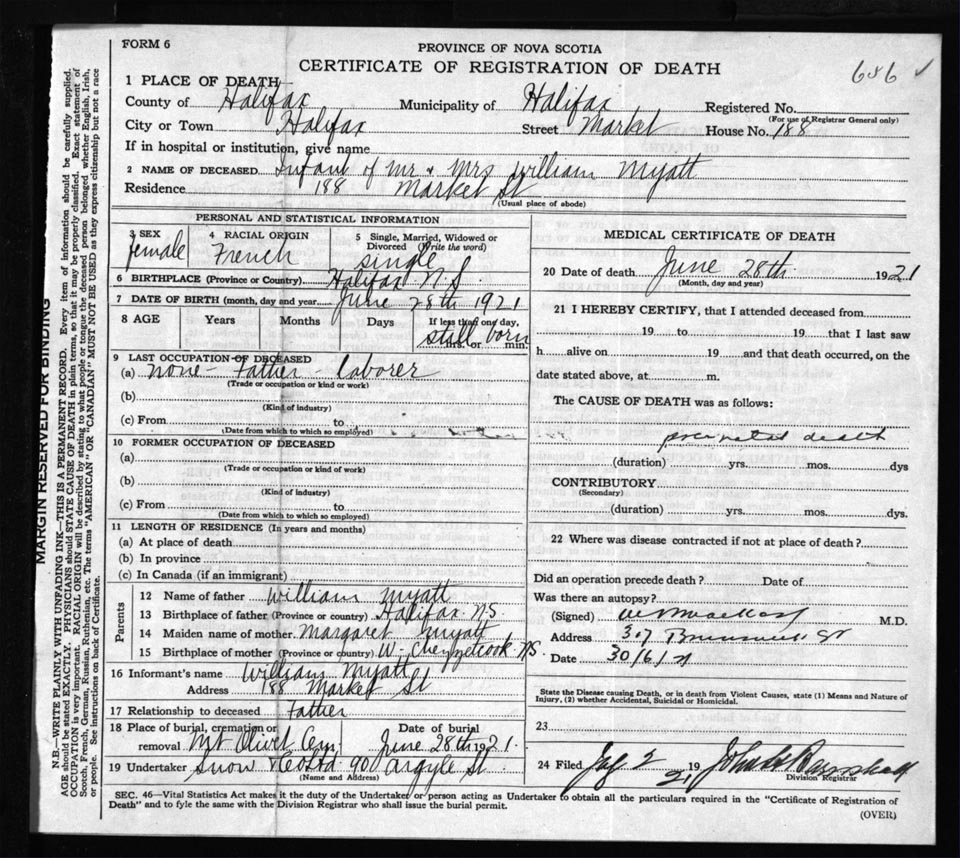 FORM 6
PROVINCE OF NOVA SCOTIA
CERTIFICATE OF REGISTRATION OF DEATH
686 ✓
1 PLACE OF DEATH
County of Halifax Municipality of Halifax Registered No.
(For use of Registrar General only)
City or Town Halifax Street Market House No. 188
If in hospital or institution, give name
2 NAME OF DECEASED Infant of Mr & Mrs William Myatt
Residence 188 Market St
(Usual place of abode)
PERSONAL AND STATISTICAL INFORMATION
3 SEX female
4 RACIAL ORIGIN French
5 Single, Married, Widowed or Divorced (Write the word) single
6 BIRTHPLACE (Province or Country) Halifax N.S.
7 DATE OF BIRTH (month, day and year) June 28th 1921
8 AGE Years Months Days If less than one day, still born hrs. or min.
9 LAST OCCUPATION OF DECEASED
(a) none - Father - Laborer
(Trade or occupation or kind or work)
(b)
(Kind of industry)
(c) From to
(Date from which to which so employed)
10 FORMER OCCUPATION OF DECEASED
(a)
(Trade or occupation or kind of work)
(b)
(Kind of industry)
(c) From to
(Date from which to which so employed)
11 LENGTH OF RESIDENCE (In years and months)
(a) At place of death
(b) In province
(c) In Canada (if an immigrant)
Parents
12 Name of father William Myatt
13 Birthplace of father (Province or country) Halifax NS
14 Maiden name of mother Margaret Myatt
15 Birthplace of mother (Province or country) W. Chezzetcook NS
16 Informant's name William Myatt
Address 188 Market St
17 Relationship to deceased Father
18 Place of burial, cremation or removal Mt Olivet Cem Date of burial June 28th 1921.
19 Undertaker Snow & Co Ltd 90 Argyle St
(Name and Address)
MEDICAL CERTIFICATE OF DEATH
20 Date of death June 28th 1921
(Month, day and year)
21 I HEREBY CERTIFY, that I attended deceased from
19 to 19 that I last saw
h alive on 19 and that death occurred, on the
date stated above, at m.
The CAUSE OF DEATH was as follows:
prenatal death
(duration) yrs. mos. dys
CONTRIBUTORY
(Secondary)
(duration) yrs. mos. dys.
22 Where was disease contracted if not at place of death?
Did an operation precede death? Date of
Was there an autopsy?
(Signed) M.D.
Address 307 Brunswick St
Date 30/6/21
State the Disease causing Death, or in death from Violent Causes, state (1) Means and Nature of
Injury, (2) whether Accidental, Suicidal or Homicidal.
23
24 Filed 2 19 21
Division Registrar
SEC. 46—Vital Statistics Act makes it the duty of the Undertaker or person acting as Undertaker to obtain all the particulars required in the "Certificate of Registration of
Death" and to fyle the same with the Division Registrar who shall issue the burial permit.
(OVER)
MARGIN RESERVED FOR BINDING
N.B.—WRITE PLAINLY WITH UNFADING INK.—THIS IS A PERMANENT RECORD. Every item of information should be carefully supplied.
AGE should be stated EXACTLY. PHYSICIANS should STATE CAUSE OF DEATH in plain terms, so that it may be properly classified. Exact statement of
OCCUPATION is very important. RACIAL ORIGIN will be described by stating to what people or tongue the deceased person belonged whether English, Irish,
Scotch, French, German, Russian, Ruthenian, etc. The terms "AMERICAN" OR "CANADIAN" MUST NOT BE USED as they express citizenship but not a race
or people. See instructions on back of Certificate.